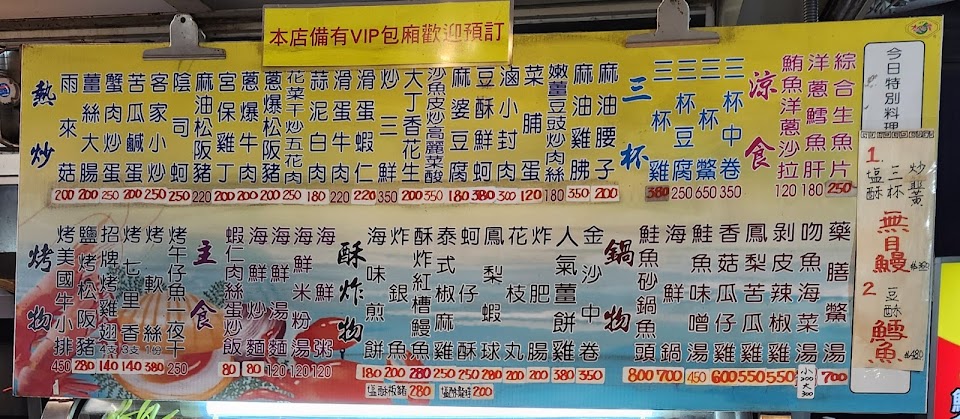 本店備有VIP包廂歡迎預訂
熱炒
雨來菇 200
薑絲大腸 200
蟹肉炒蛋 250
苦瓜鹹蛋 200
客家小炒 250
陰司蚵 250
麻油松阪豬 220
宮保雞丁 200
蔥爆牛肉 200
蔥爆松阪豬 200
花菜干炒五花肉 250
蒜泥白肉 180
滑蛋牛肉 220
滑蛋蝦仁 220
炒三鮮 350
大丁香花生 200
沙魚皮炒高麗菜酸 350
麻婆豆腐 180
豆酥鮮蚵 380
滷小封肉 300
菜脯蛋 120
嫩薑豆豉炒肉絲 180
麻油雞胇 350
麻油腰子 200
三杯
三杯雞 380
三杯豆腐 250
三杯鱉 650
三杯中卷 350
涼食
鮪魚洋蔥沙拉 120
洋蔥鱈魚肝 180
綜合生魚片 250
烤物
烤美國牛小排 450
鹽烤松阪豬 280
招牌烤雞翅 4隻 140
烤七里香 3支 140
烤軟絲 1份 380
烤午仔魚一夜干 250
主食
蝦仁肉絲蛋炒飯 80
海鮮炒麵 80
海鮮湯麵 120
海鮮米粉湯 120
海鮮粥 120
酥炸物
海味煎餅 180
炸銀魚 200
酥炸紅槽鰻魚 280
泰式椒麻雞 250
蚵仔酥 250
鳳梨蝦球 280
花枝丸 200
炸肥腸 200
人氣薑餅雞 380
金沙中卷 350
塩酥板豬 280
塩酥龍珠 200
鍋物
鮭魚砂鍋魚頭 800
海鮮鍋 700
鮭魚味噌湯 450
香菇仔雞 600
鳳梨苦瓜雞 550
剝皮辣椒雞 550
吻魚海菜湯 小200大300
藥膳鱉湯 700
今日特別料理
1. 炒三杯塩酥 無目鰻
2 豆酥 鱈魚 480